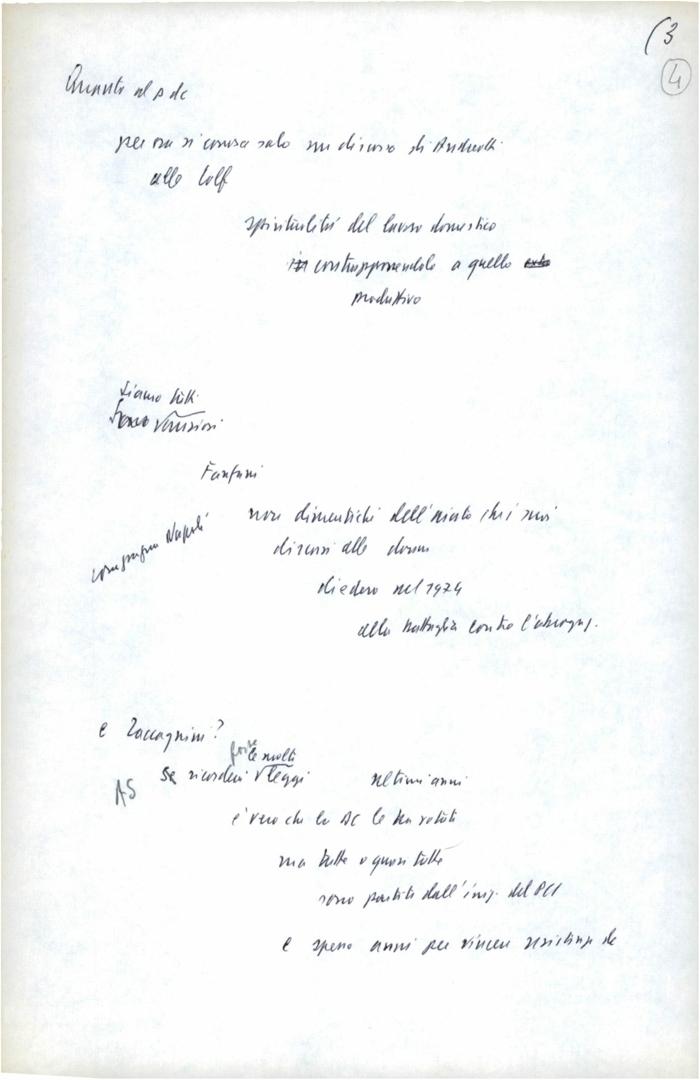 (3
4
Quanto al pdc
per ora si conosce solo un discorso di Andreotti
alle Colf
spiritualità del lavoro domestico
contrapponendolo a quello
produttivo
siamo tutti
Fanfani
non dimentichi dell'aiuto che i suoi
discorsi alle donne
diedero nel 1974
alla battaglia contro l'abrogaz.
compagna Napoli
e Zaccagnini?
forse
le molte
AS
Se ricorderà leggi ultimi anni
è vero che la DC le ha votate
ma tutte o quasi tutte
sono partite dall'iniz. del PCI
e spesso anni per vincere resistenze dc